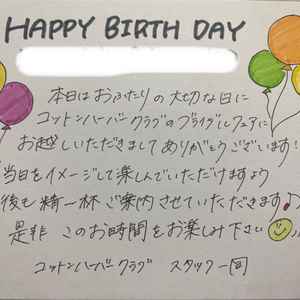 HAPPY BIRTH DAY
本日はおふたりの大切な日に
コットンハーバークラブのブライダルフェアに
お越しいただきましてありがとうございます!
当日をイメージして楽しんでいただけますよう
後も精一杯ご案内させていただきます♪
是非 このお時間をお楽しみ下さい
コットンハーバークラブ スタッフ一同